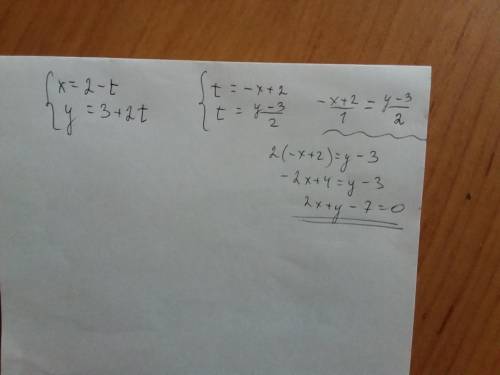 { x = 2 - t
y = 3 + 2t
{ t = -x + 2
t = (y - 3)/2
(-x + 2)/1 = (y - 3)/2
2(-x + 2) = y - 3
-2x + 4 = y - 3
2x + y - 7 = 0